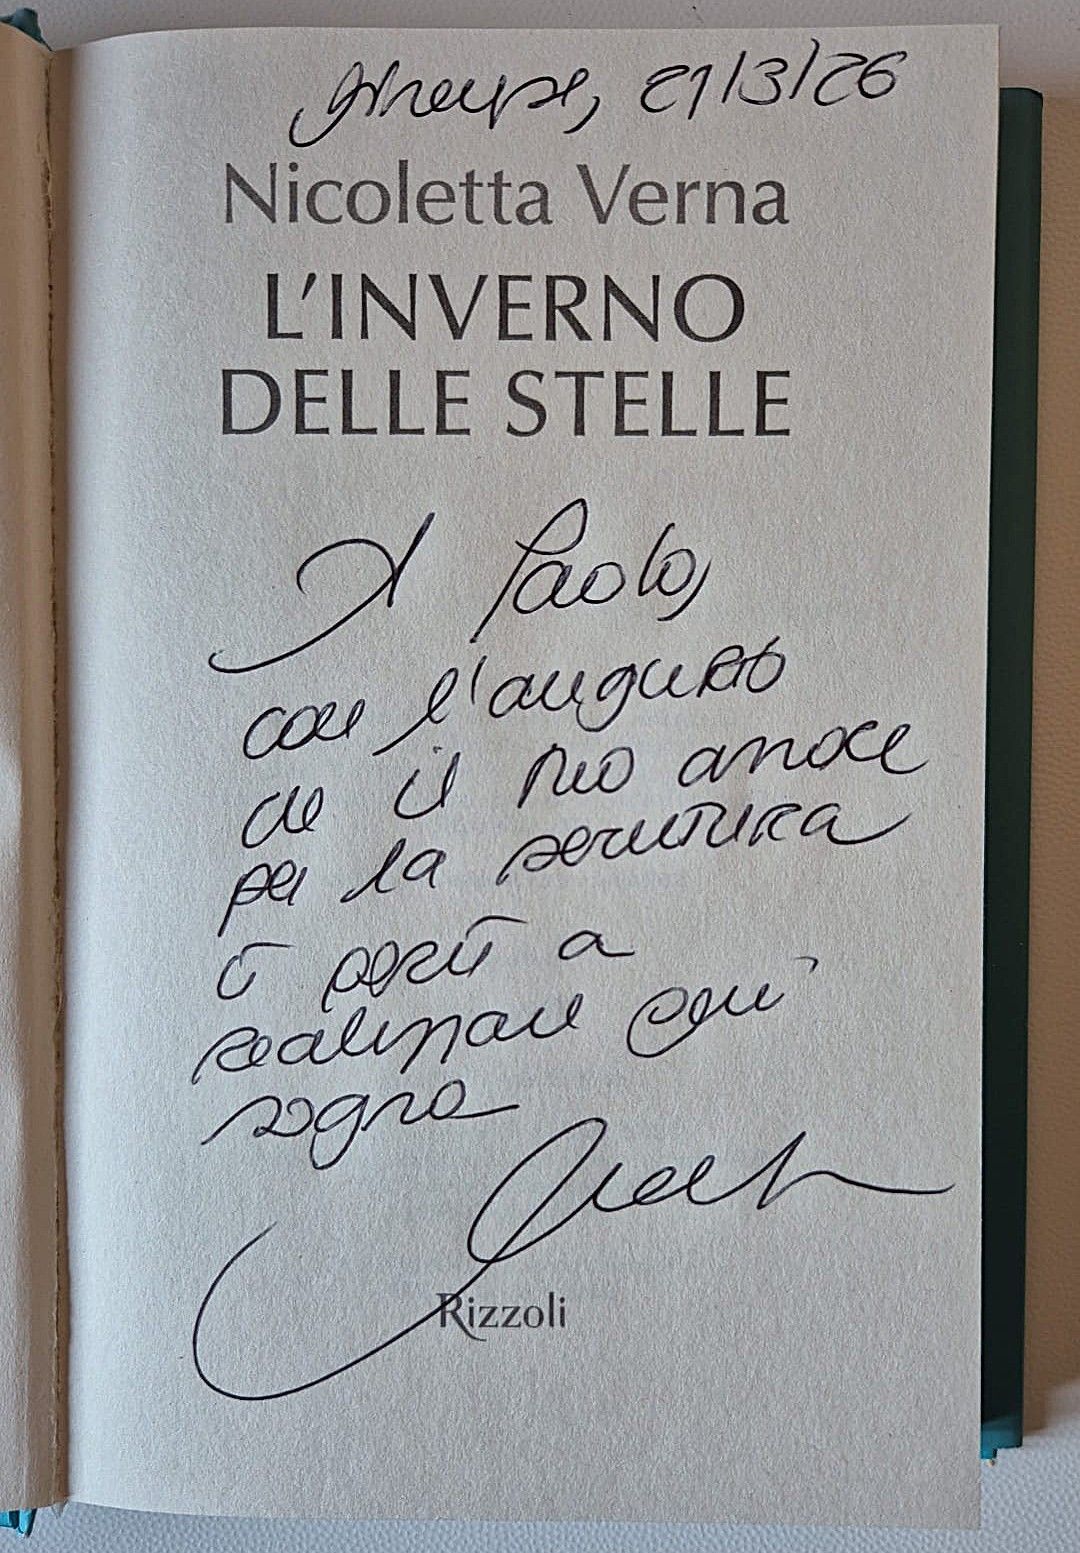 Firenze, 21/3/26
Nicoletta Verna
L'INVERNO
DELLE STELLE
A Paolo,
con l'augurio
che il tuo amore
per la scrittura
ti porti a
realizzare ogni
sogno
Rizzoli